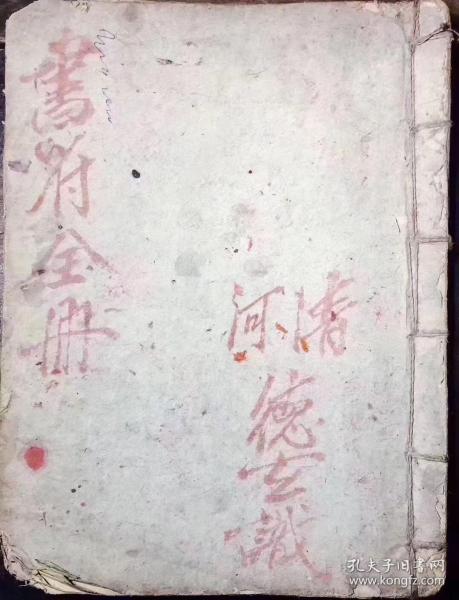 清河
德玄識
書符全冊
孔夫子旧书网
www.kongfz.com